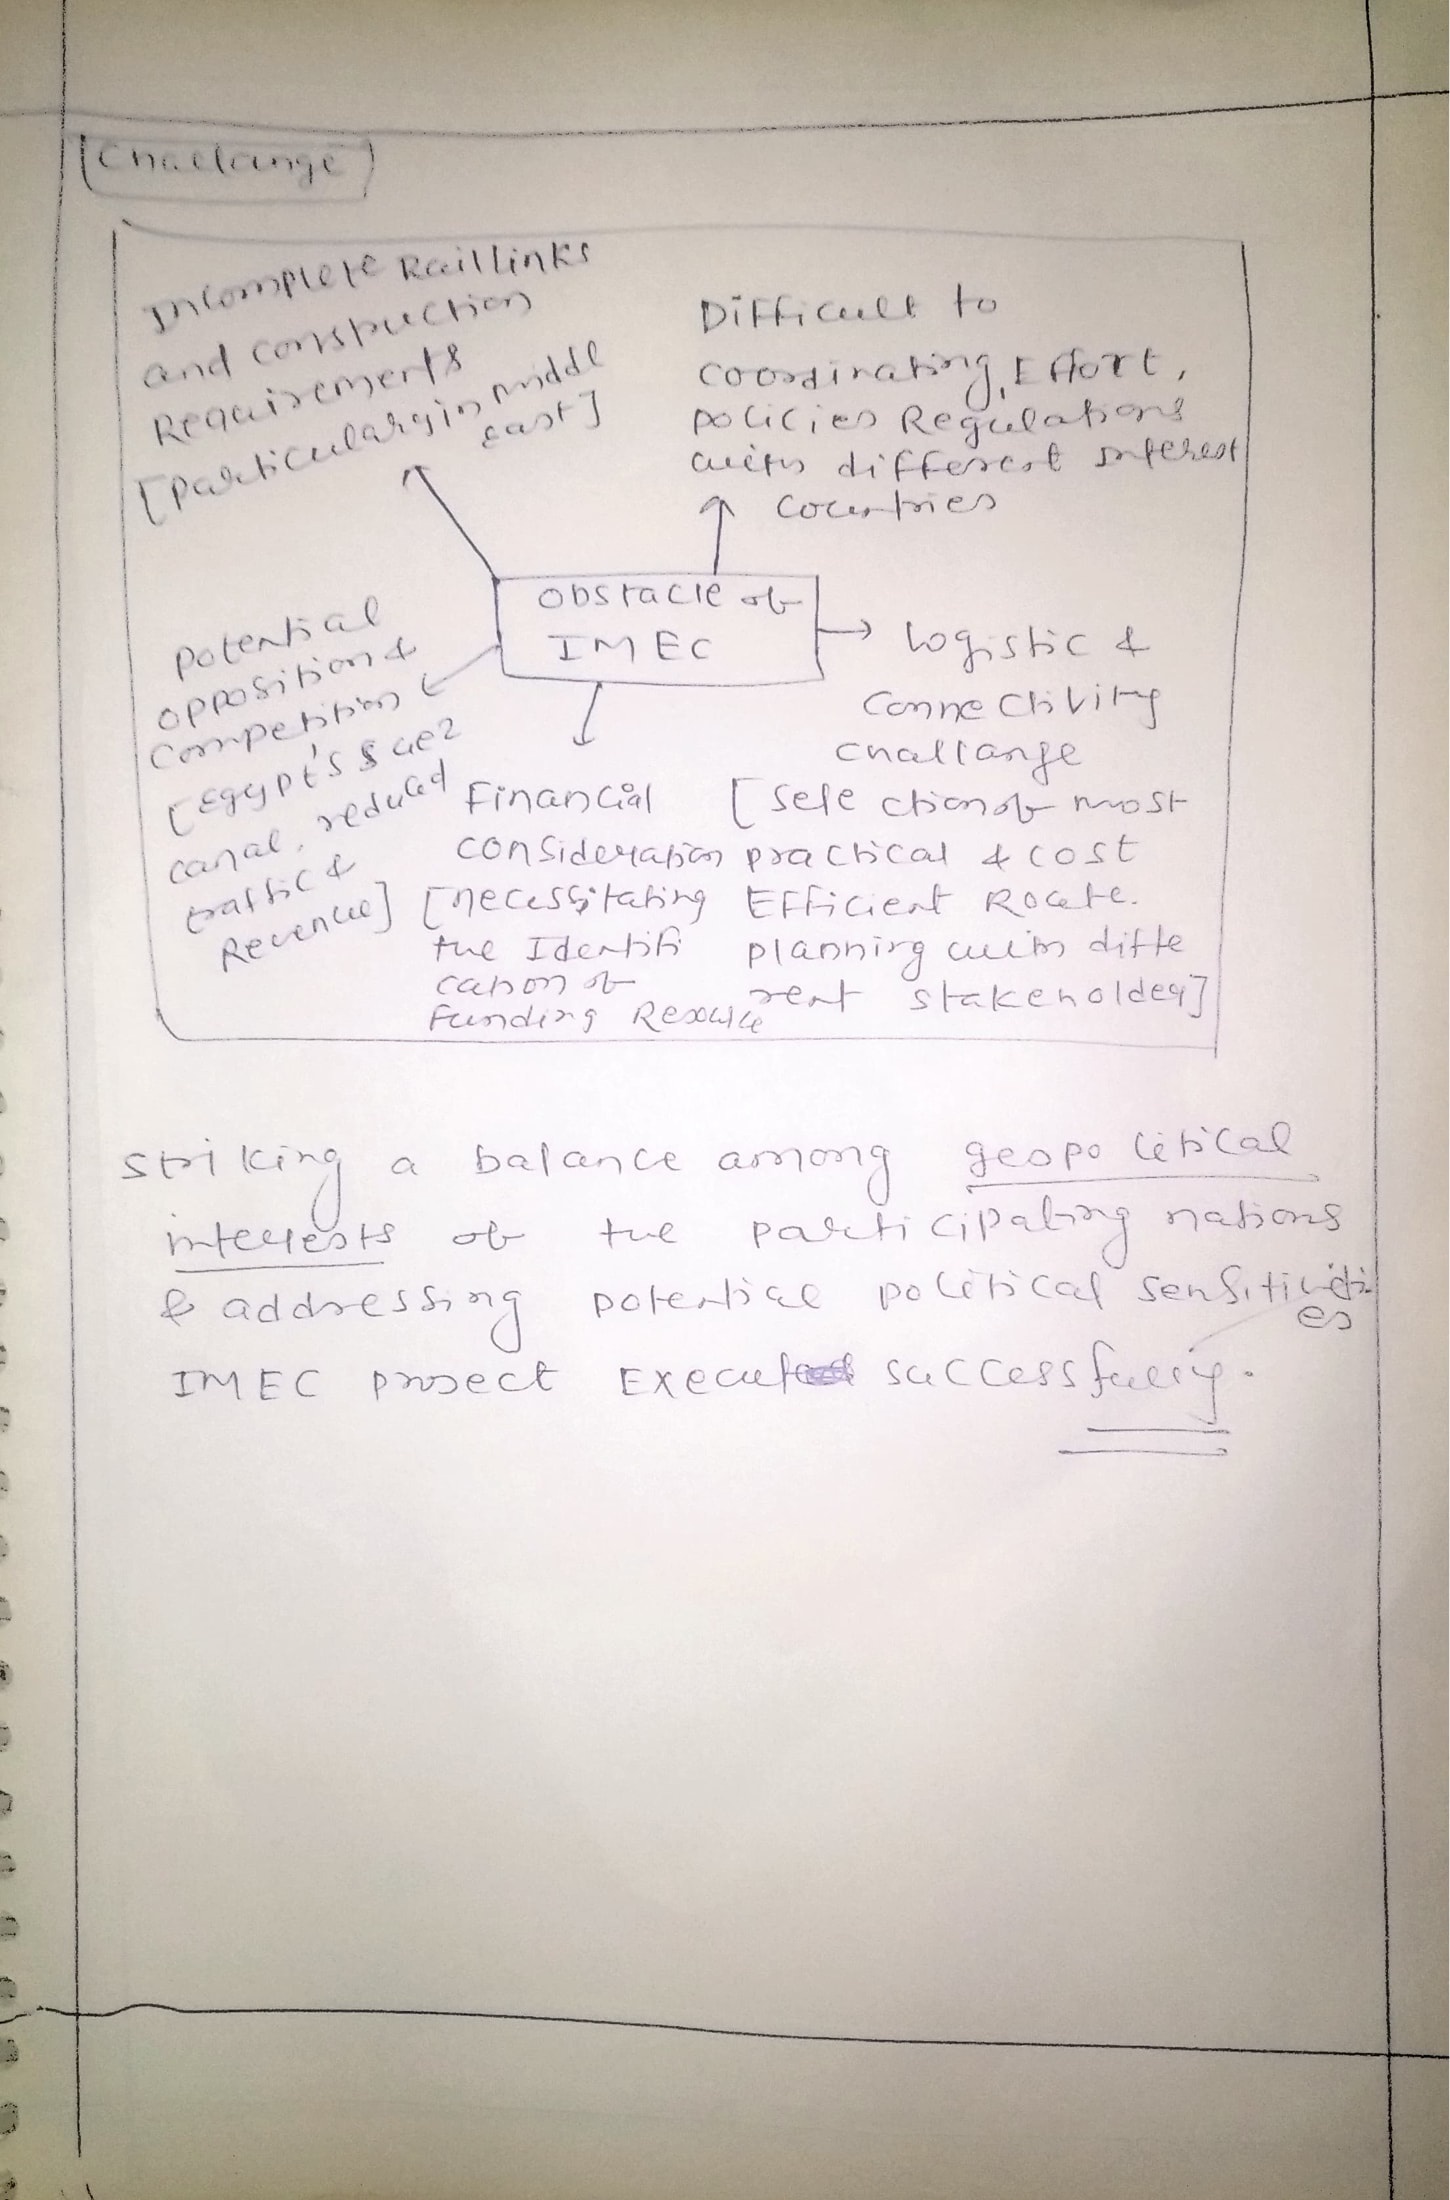 [Challange]
Incomplete Rail links
and construction
Requirements
[particularly in middl
east]
Difficult to
coordinating, Effort,
policies Regulations
with different Interest
countries
Obstacle of
IMEC
potential
opposition &
competition
[Egypt's Suez
canal, reduced
traffic &
Revenue]
Financial
consideration
[necessitating
the Identifi
cation of
Funding Resource
Logistic &
Connectivity
challange
[selection of most
practical & cost
Efficient Route.
planning with diffe
rent stakeholder]
striking a balance among geopolitical
interests of the participating nations
& addressing potential political sensitiviti
es
IMEC project Executed successfully.